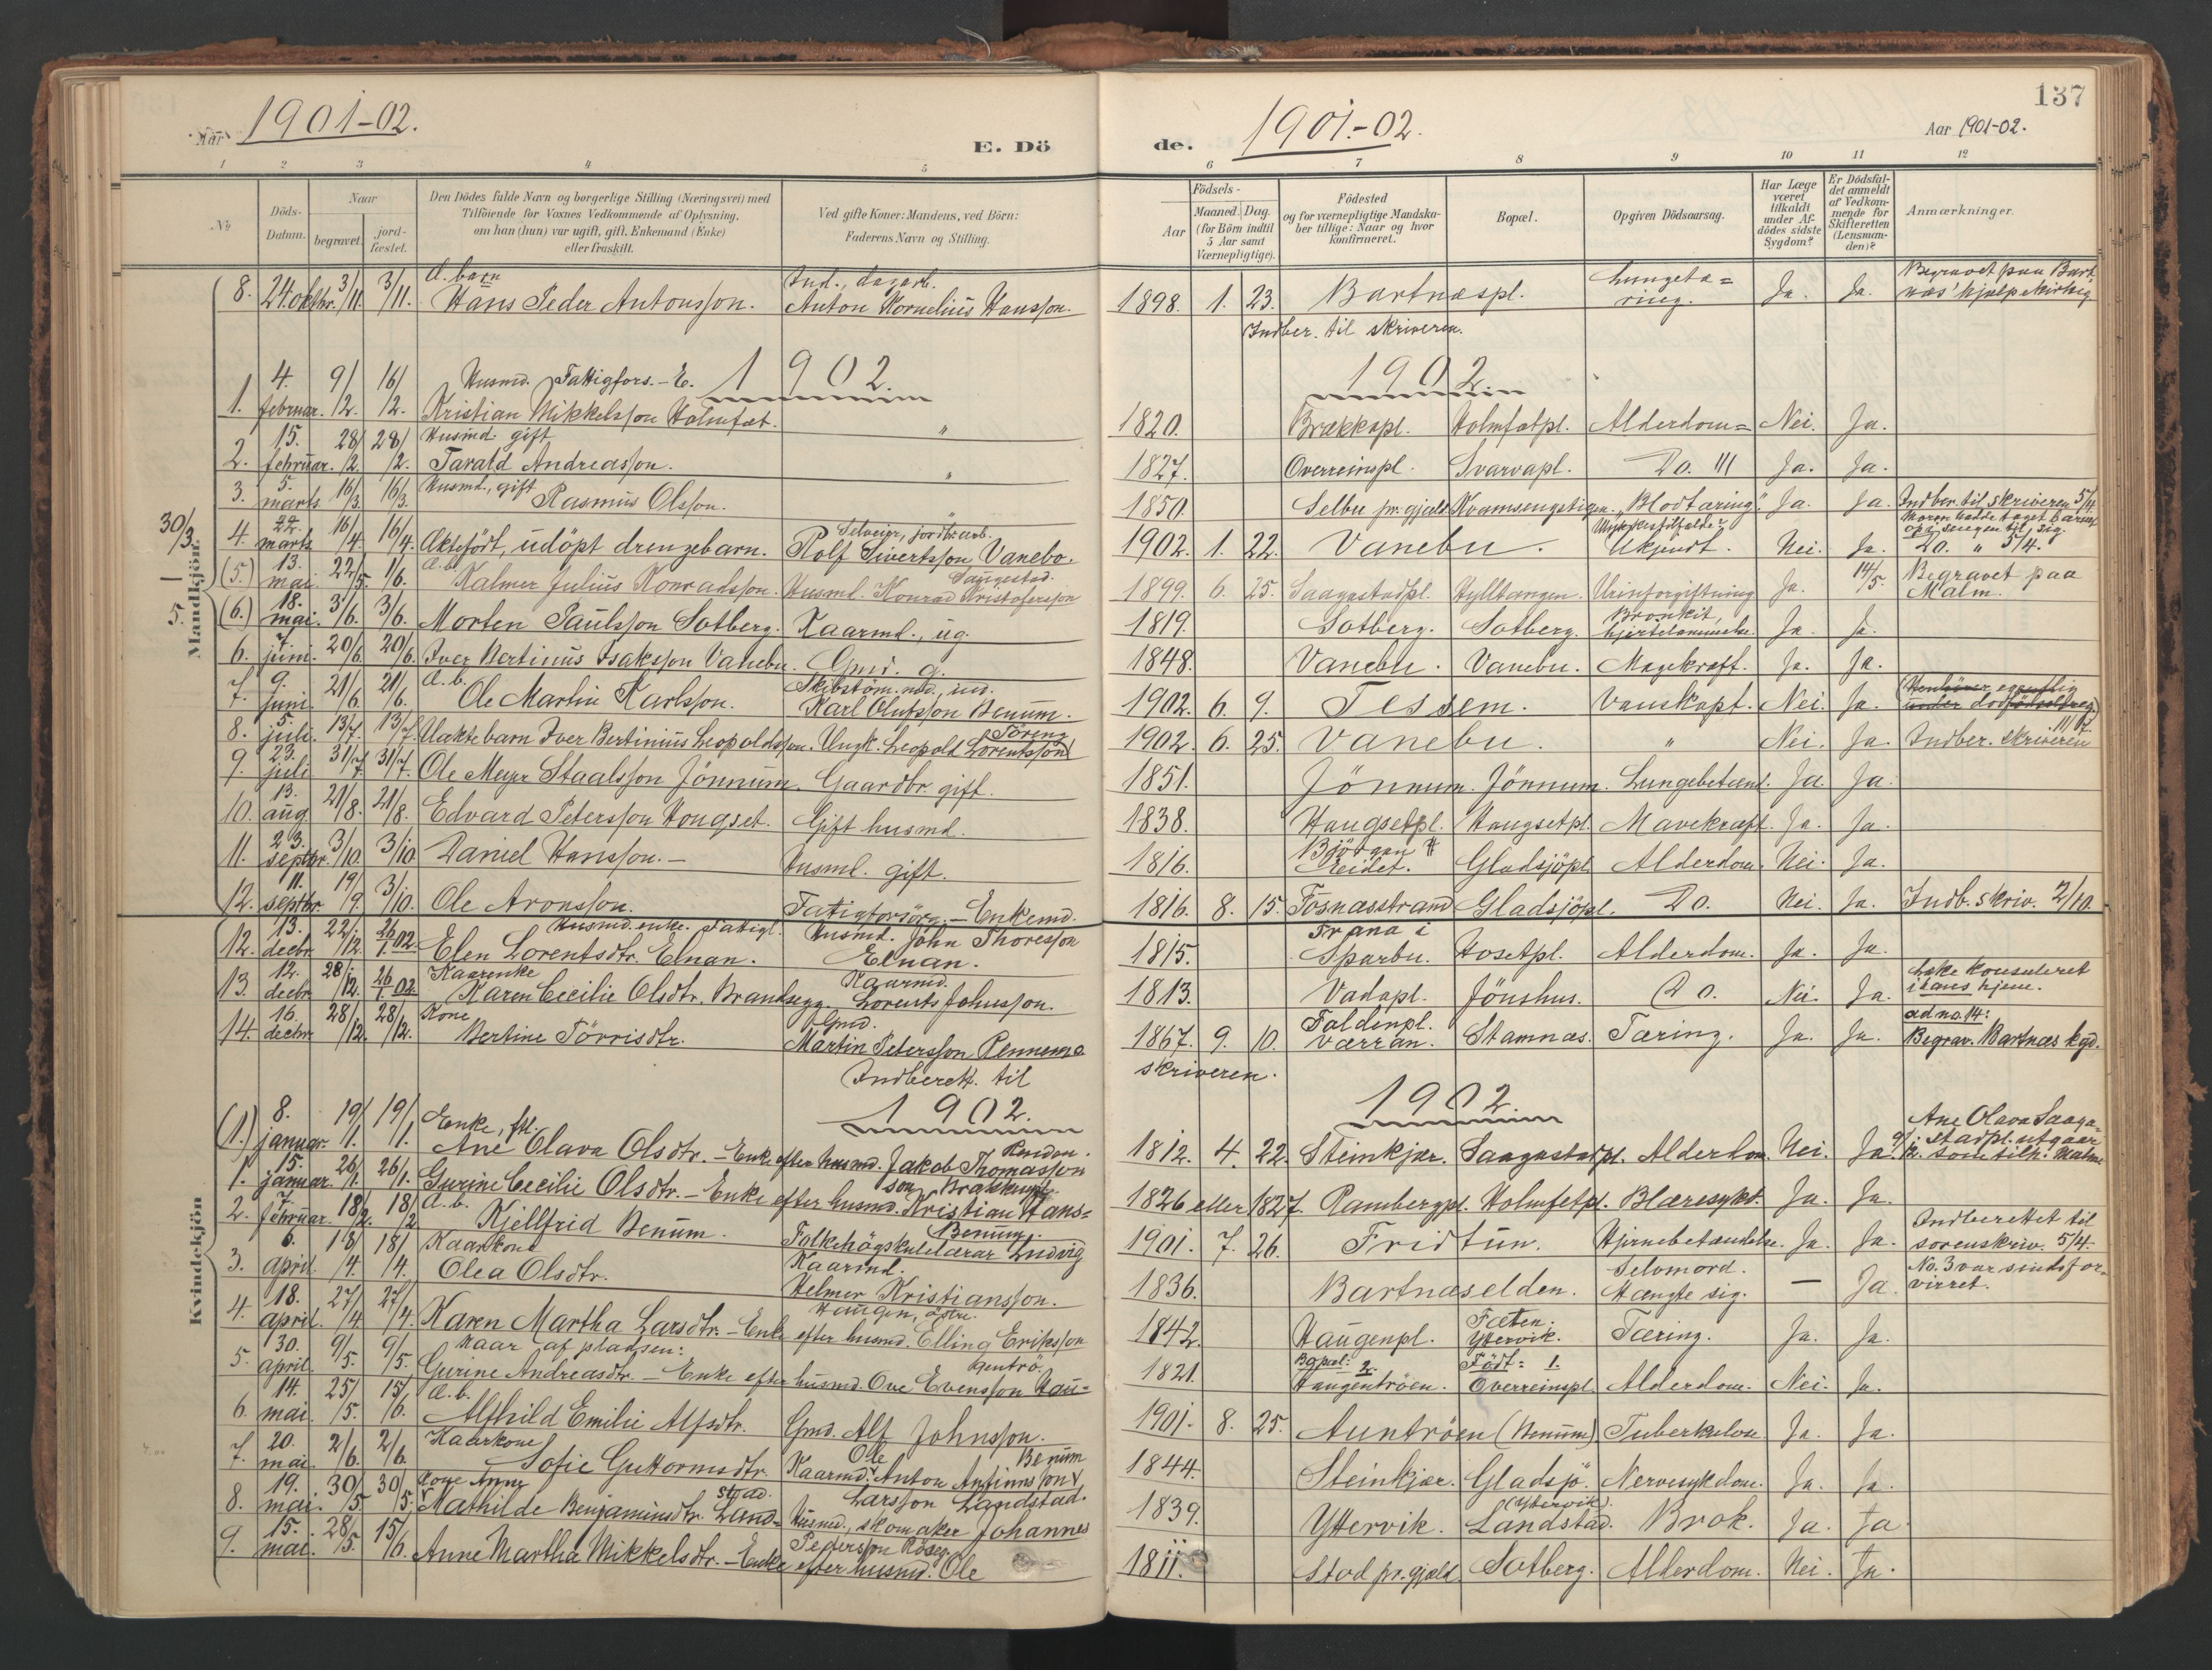 137
Aar 1901-02.
E. Dö
de.
1901-02.
Aar 1901-02.
1 2 3 4 5 6 7 8 9 10 11 12
No
Döds-Datum.
Naar
begravet.
jord-fæstet.
Den Dödes fulde Navn og borgerlige Stilling (Næringsvei) med
Tilföiende for Voxnes Vedkommende af Oplysning,
om han (hun) var ugift, gift, Enkemand (Enke)
eller fraskilt.
Ved gifte Koner: Mandens, ved Börn:
Faderens Navn og Stilling.
Födsels-
Aar
Maaned. Dag.
(for Börn indtil
5 Aar samt
Værnepligtige).
Födested
og for værnepligtige Mandska-
ber tillige: Naar og hvor
konfirmeret.
Bopæl.
Opgiven Dödsaarsag.
Har Læge
været
tilkaldt
under Af-
dödes sidste
Sygdom?
Er Dödsfal-
det anmeldt
af Vedkom-
mende for
Skifteretten
(Lensman-
den)?
Anmærkninger.
Mandkjön.
30/3
5.
8. 24. oktbr. 3/11. 3/11. Æ. barn Hans Peder Antonsson. Ind., dagarb. Anton Kornelius Hansson. 1898. 1. 23. Bartnæspl. Lungetæ=ring. Ja. Ja. Begravet paa Bartnæs' hjælpekirkeg.
Indber. til skriveren.
1902. 1902.
1. 4. februar. 9/2. 16/2. Husmd. Fattigfors.-E. Kristian Mikkelsson Holmfæt. 1820. Brækkapl. Holmfætpl. Alderdom= Nei. Ja.
2. 15. februar. 28/2. 28/2. Husmd. gift Tarald Andreasson. " 1827. Overreinspl. Svarvapl. Do. Ja. Ja.
3. 5. marts 16/3. 16/3. Husmd., gift Rasmus Olsson. " 1850. Selbu pr.gjæld Kvamsengstigen. "Blodtæring". Ja. Ja. Indber. til skriveren 5/4
4. 22. marts 16/4. 16/4. Ektefödt, udöpt drengebarn. Selveier, jordbr.arb. Rolf Sivertsson Vanebo. 1902. 1. 22. Vanebu. Ukjendt. Nei. Ja. Do. " 5/4.
(5.) 13. mai. 22/5. 1/6. Æ.b. Kalmer Julius Konradsson. Husmd. Konrad Kristofersson Saugestad. 1899. 6. 25. Saagastadpl. Hylltangen. Urinforgiftning Ja. 14/5. Begravet paa Malm.
(6.) 18. mai. 3/6. 3/6. Morten Paulsson Sotberg. Kaarmd., ug. 1819. Sotberg. Sotberg. Bronkit, hjertelammelse. Ja. Ja.
6. 7. juni. 20/6. 20/6. Iver Bertinus Isaksson Vanebu. Gmd. g. 1848. Vanebu. Vanebu. Magekræft. Ja. Ja.
7. 9. juni. 21/6. 21/6. Æ.b. Ole Martin Karlsson. Skibstöm.md., ind. Karl Olufsson Benum. 1902. 6. 9. Tessem. Vanskapt. Nei. Ja.
8. 5. juli. 13/7. 13/7. Uækte barn Iver Bertinius Leopoldsson. Ungk. Leopold Lorentsson 1902. 6. 25. Vanebu. " Nei. Ja. Indber. skriveren 11/7.
9. 23. juli 31/7. 31/7. Ole Meyer Staalsson Jönnum. Gaardbr. gift. 1851. Jönnum. Jönnum. Lungebetænd. Ja. Ja.
10. 13. aug. 21/8. 21/8. Edvard Petersson Hougset. Gift husmd. 1838. Haugsetpl. Haugsetpl. Mavekræft. Ja. Ja.
11. 23. septbr. 3/10. 3/10. Daniel Hansson. - Husmd. gift. 1816. Björgan Reidet. Gladsjöpl. Alderdom. Nei. Ja.
12. 11. septbr. 19/9. 3/10. Ole Aronsson. Fattigforsörg.-Enkemd. 1816. 8. 15. Fosnæsstrand Gladsjöpl. Do. Nei. Ja. Indb. skriv. 2/10.
Kvindekjön
12. 13. decbr. 22/12. 26/1.02. Husmd.enke. Fattigl. Elen Lorentsdtr. Elnan. Husmd. John Thoresson Elnan. 1815. Frana i Sparbu. Hosetpl. Alderdom. Ja. Ja.
13. 12. decbr. 28/12. 26/1.02. Kaarenke Karen Cecilie Olsdtr. Brandsegg. Kaarmd. Lorents Johnsson. 1813. Vadapl. Jönshus. Do. Nei. Ja. Læke konsuleret i hans hjem.
14. 16. decbr. 28/12. 28/12. Kone Bertine Törrisdtr. Gmd. Martin Petersson Rennemo. 1867. 9. 10. Foldenpl. Værran. Stamnas. Tæring. Ja. Ja. ad no. 14: Begrav. Bartnæs kgd.
Indberett. til skriveren.
1902. 1902.
(1.) 8. januar. 19/1. 19/1. Enke, ftl. Ane Olava Olsdtr. - Enke efter husmd. Jakob Thomasson 1812. 4. 22. Steinkjær. Saagastadpl. Alderdom. Nei. Ja. Ane Olava Saaga-stadpl. utgaar som tilh. Malm
1. 15. januar. 26/1. 26/1. Gurine Cecilie Olsdtr. - Enke efter husmd. Kristian Hans=son 1826 eller 1827. Rambergpl. Holmfetpl. Blæresykd. Ja. Ja.
2. 7. februar. 18/2. 18/2. Æ.b. Kjellfrid Benum. Folkehögskulelærar Ludvig Benum. 1901. 7. 26. Fridtun. Hjernebetændelse. Ja. Ja. Indberettet til sorenskriv. 5/4.
3. 6. april. 18/4. 18/4. Kaarkone Olea Olsdtr. Kaarmd. Helmer Kristiansson. 1836. Bartnæselden. Selvmord. Hængte sig. — Ja. No. 3 var sindsfor-virret.
4. 18. april. 27/4. 27/4. Karen Martha Larsdtr. - Enke efter husmd. Elling Eriksson Haugen, östre. 1842. Haugenpl. Fæten, Yttervik. Tæring. Ja. Ja.
5. 30. april. 9/5. 9/5. Kaar af pladsen: Gurine Andreasdtr. - Enke efter husmd. Ove Evensson Hau=gentrö. 1821. Bopæl: 2. Haugentröen. Födt: 1. Overreinspl. Alderdom. Nei. Ja.
6. 14. mai. 25/5. 15/6. Æ.b. Alfhild Emilie Alfsdtr. Gmd. Alf Johnsson. 1901. 8. 25. Auntröen (Benum) Tuberkulose. Ja. Ja.
7. 20. mai. 2/6. 2/6. Kaarkone Sofie Guttormsdtr. Kaarmd. Ole Anton Antinusson Benum 1844. Steinkjær. Gladsjö. Nervesykdom. Ja. Ja.
8. 19. mai. 30/5. 30/5. Kone Anne Mathilde Benjaminsdtr. Land=stad. Larsson Landstad. Husmd., skomaker Johannes 1839. Yttervik. Landstad. (Yttervik). Brok. Ja. Ja.
9. 15. mai. 28/5. 15/6. Anne Martha Mikkelsdtr. - Enke efter husmd. Ole Pedersson 1811. Stod pr.gjæld. Sotberg. Alderdom. Nei. Ja.